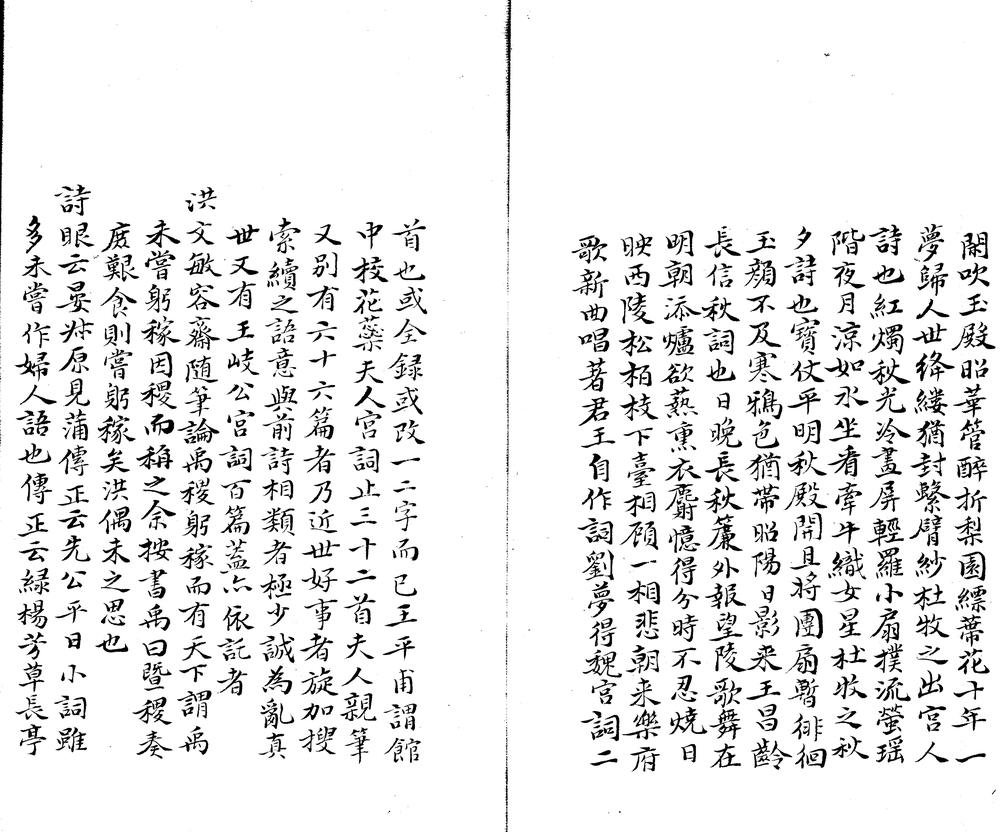 閑吹玉殿昭華管醉折梨園縹蔕花十年一
夢歸人世絳縷猶封繫臂紗杜牧之出宮人
詩也紅燭秋光冷畫屏輕羅小扇撲流螢瑶
階夜月涼如水坐看牽牛織女星杜牧之秋
夕詩也寶仗平明秋殿開且將團扇暫徘徊
玉顏不及寒鴉色猶帶昭陽日影来王昌齡
長信秋詞也日晚長秋簾外報望陵歌舞在
明朝添爐欲爇熏衣麝憶得分時不忍燒日
映西陵松栢枝下臺相顧一相悲朝来樂府
歌新曲唱著君王自作詞劉夢得魏宮詞二
首也或全録或改一二字而已王平甫謂館
中校花蘂夫人宮詞止三十二首夫人親筆
又别有六十六篇者乃近世好事者旋加搜
索續之語意與前詩相類者極少誠為亂真
世又有王岐公宮詞百篇葢亦依託者
洪文敏容齋随筆論禹稷躬稼而有天下謂禹
未嘗躬稼因稷而稱之余按書禹曰暨稷奏
庻艱食則嘗躬稼矣洪偶未之思也
詩眼云晏叔原見蒲傳正云先公平日小詞雖
多未嘗作婦人語也傳正云緑楊芳草長亭